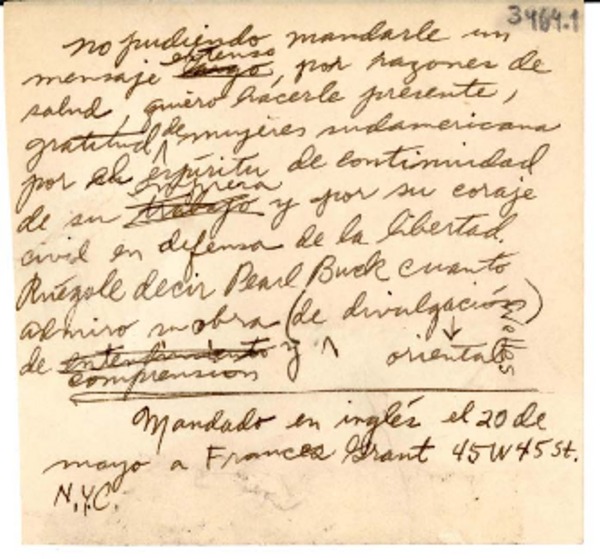 3464.1
no pudiendo mandarle un
mensaje largo extenso, por razones de
salud, quiero hacerle presente,
gratitud de mujeres sudamericana
por su espíritu de continuidad
de su trabajo empresa y por su coraje
civil en defensa de la libertad.
Ruégole decir Pearl Buck cuanto
admiro su obra (de divulgación)
de entendimiento y orientales
comprension
Mandado en inglés el 20 de
mayo a Frances Grant 45 W 45 St.
N.Y.C.